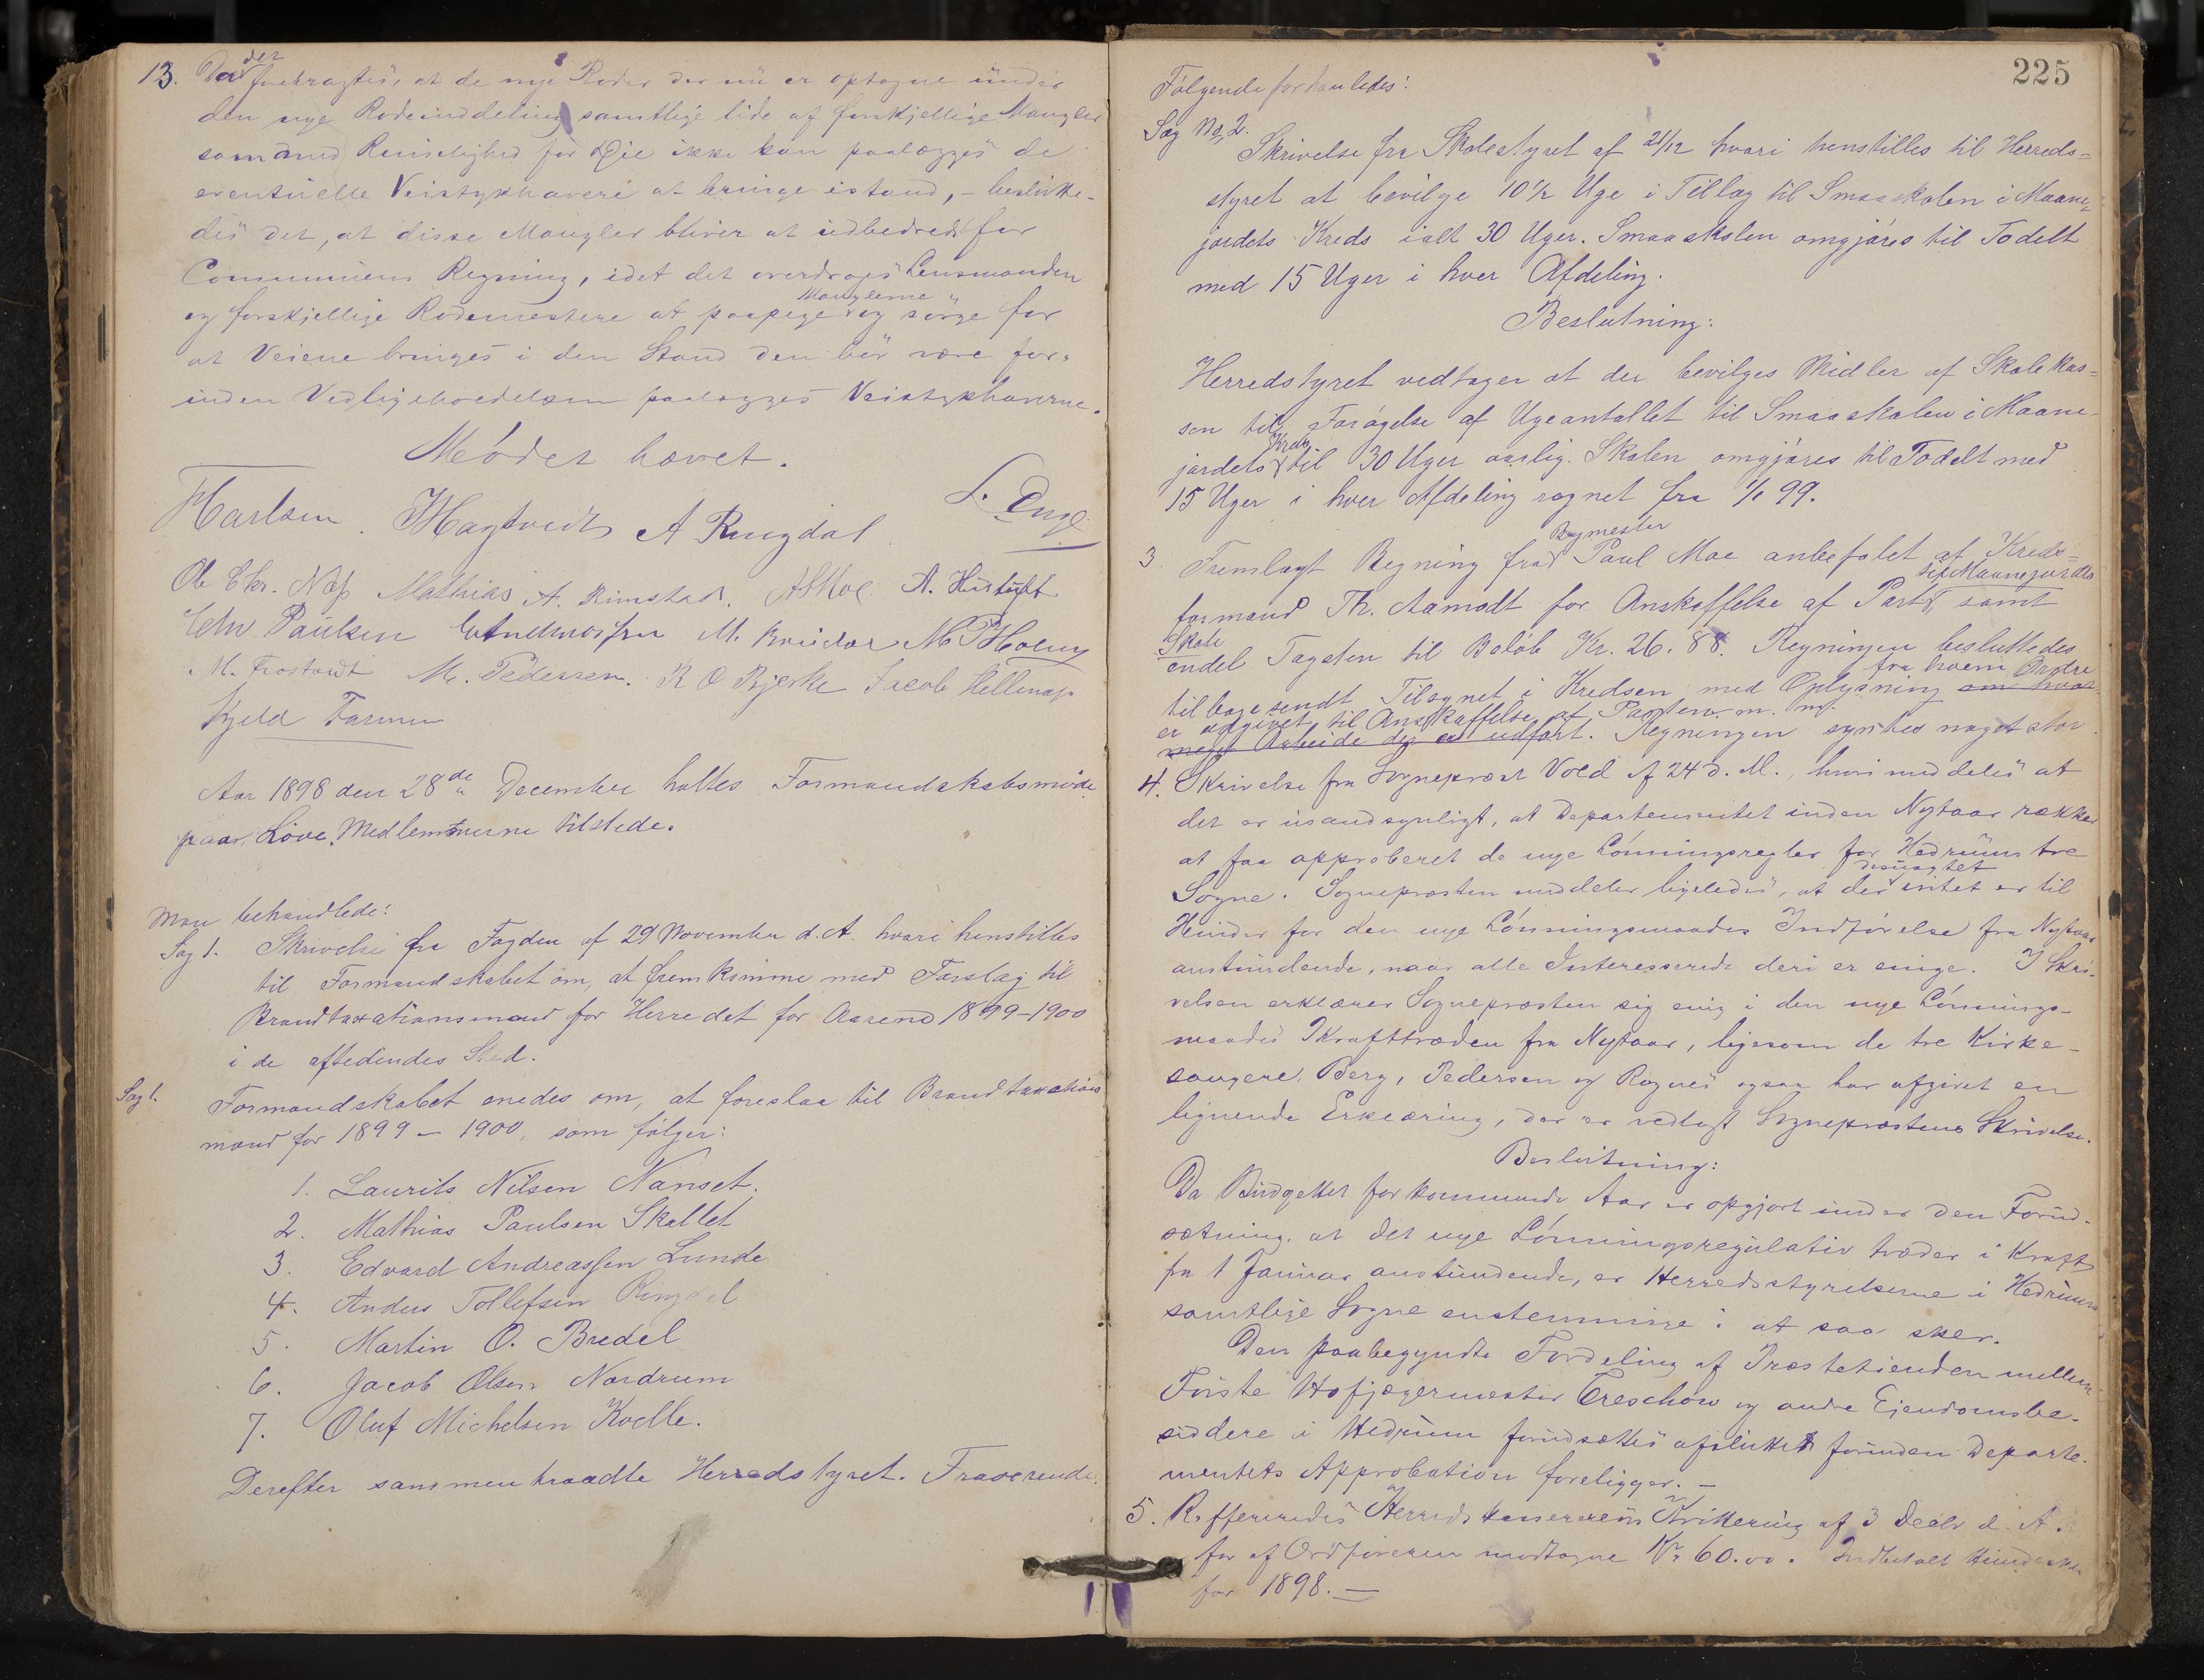 13. Da det forebragtes, at de nye Roder der nu er optagne under
den nye Rodeinddeling samtlige lide af forskjellige Mangler
som med Rimelighed for Øie ikke kan paalægges de
eventuelle Veistykhavere at bringe istand, – beslutte-
des det, at disse Mangler bliver at udbedres for
Communens Regning, idet det overdrages Lensmanden
og forskjellige Rodemestere at paapege Manglerne og sørge for
at Veiene bringes i den Stand den bør være for-
inden Vedligeholdelsen paalægges Veistykhaverne.
Mødet hævet.
L. Enge
A Ringdal
Ole Chr. Næs Mathias A. Rimstad. A Moe A.
Edv Paulsen M. M P Holm
M. Pedersen. K O Bjerke Jacob
Kjeld Farmen
Aar 1898 den 28de December holtes Formandskabsmøde
paa Løve. Medlemmerne tilstede.
Man behandlede:
Sag 1. Skrivelse fra Fogden af 29 November d. A. hvori henstilles
til Formandskabet om, at fremkomme med Forslag til
Brandtaxationsmænd for Herredet for Aarene 1899–1900
i de aftrædendes Sted.
Sag 1.
Formandskabet enedes om, at foreslaa til Brandtaxations
mænd for 1899 – 1900, som følger:
1. Laurits Nilsen Nanset.
2. Mathias Paulsen Skallet
3. Edvard Andreassen Lunde
4. Anders Tollefsen Ringdal
5. Martin O. Bredel
6. Jacob Olsen Nordrum
7. Oluf Michelsen Kvelle.
Derefter sammentraadte Herredstyret. Fraværende
225
Følgende forhandledes:
Sag No. 2.
Skrivelse fra Skolestyret af 21/12 hvori henstilles til Herreds=
styret at bevilge 10 1/2 Uge i Tillæg til Smaaskolen i Maane-
jordets Kreds ialt 30 Uger. Smaaskolen omgjøres til Todelt
med 15 Uger i hver Afdeling.
Beslutning:
Herredstyret vedtager at der bevilges Midler af Skolekas=
sen til Forøgelse af Ugeantallet til Smaaskolen i Maane-
jordets Kreds til 30 Uger aarlig. Skolen omgjøres til Todelt med
15 Uger i hver Afdeling regnet fra 1/1 99.
3 Fremlagt Regning fra Bygmester Paul Moe anbefalet af Kreds-
formand Th. Aamodt for Anskaffelse af Port til Maanejordets Skole samt
endel Tagsten til Beløb Kr. 26.88. Regningen besluttedes
tilbagesendt Tilsynet i Kredsen med Oplysning om hvor fra hvem Ordre
er udgivet til Anskaffelse af Porten m. m.
meget Arbeide der er udført. Regningen syntes noget stor.
4. Skrivelse fra Sogneprest Vold af 24 d. M., hvori meddeles at
det er usandsynligt, at Departementet inden Nytaar rækker
at faa approberet de nye Lønningsregler for Hedrums tre
Sogne. Sognepresten meddeler ligeledes, at der desuagtet intet er til
Hinder for den nye Lønningsmaades Indførelse fra Nytaar
anstundende, naar alle Interesserede deri er enige. I Skri-
velsen erklærer Sognepresten sig enig i den nye Lønnings-
maades Ikrafttræden fra Nytaar, ligesom de tre Kirke-
sangere, Berg, Pedersen og Rognes ogsaa har afgivet en
lignende Erklæring, der er vedlagt Sogneprestens Skrivelse.
Beslutning:
Da Budgettet for kommende Aar er opgjort under den Forud-
sætning, at det nye Lønningsregulativ træder i Kraft
fra 1 Januar anstundende, er Herredsstyrelserne i Hedrums
samtlige Sogne enstemmige i at saa sker.
Den paabegyndte Fordeling af Prestetienden mellem
Første Hofjægermester Treschow og andre Eiendomsbe-
siddere i Hedrum forudsættes afsluttet forinden Departe-
mentets Approbation foreligger. –
5. Refereredes Herredskassererens Kvittering af 3 Decbr d. A.
for af Ordføreren modtagne Kr 60.00. Indbetalt
for 1898. –